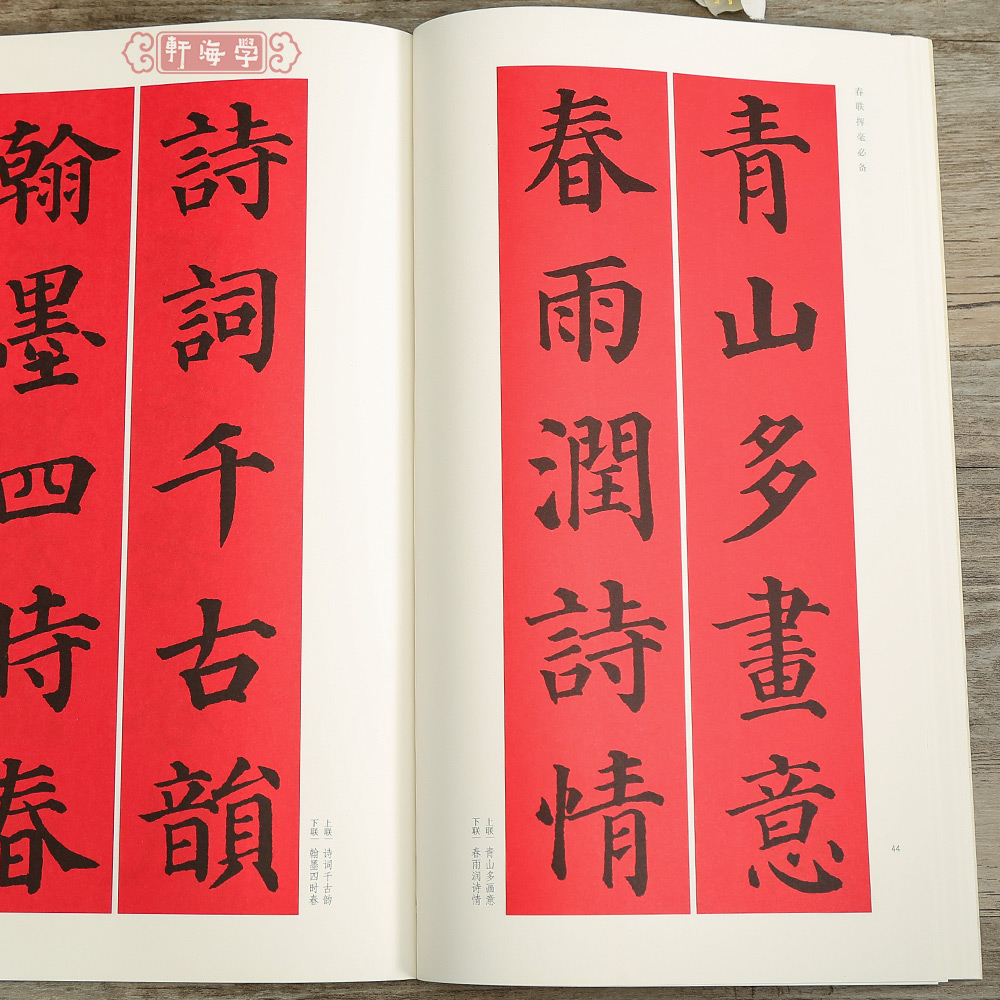 學海軒
春联挥毫必备
青山多畫意
春雨潤詩情
上联｜青山多画意
下联｜春雨润诗情
44
詩詞千古韻
翰墨四時春
上联｜诗词千古韵
下联｜翰墨四时春